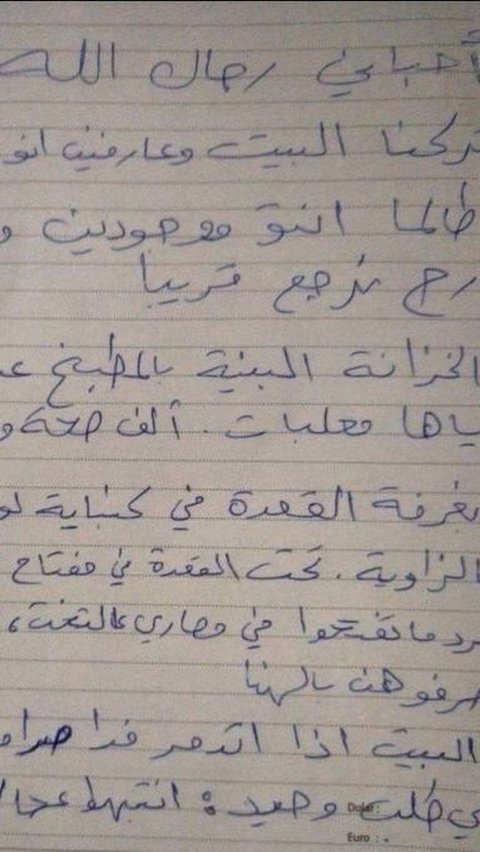 أحبابي رجال الله
تركنا البيت وعارفين انو
طالما انتو موجودين و
رح نرجع قريبا
الخزانة البنية بالمطبخ
ياها معلبات. ألف صحة و
بغرفة القعدة في كنباية
الزاوية. تحت القعدة في مفتاح
ما تفتحوا في مصاري عالتخت،
بالهنا
البيت اذا اتدمر فدا
وحيد: انتبهوا
Dolar :
Euro : .